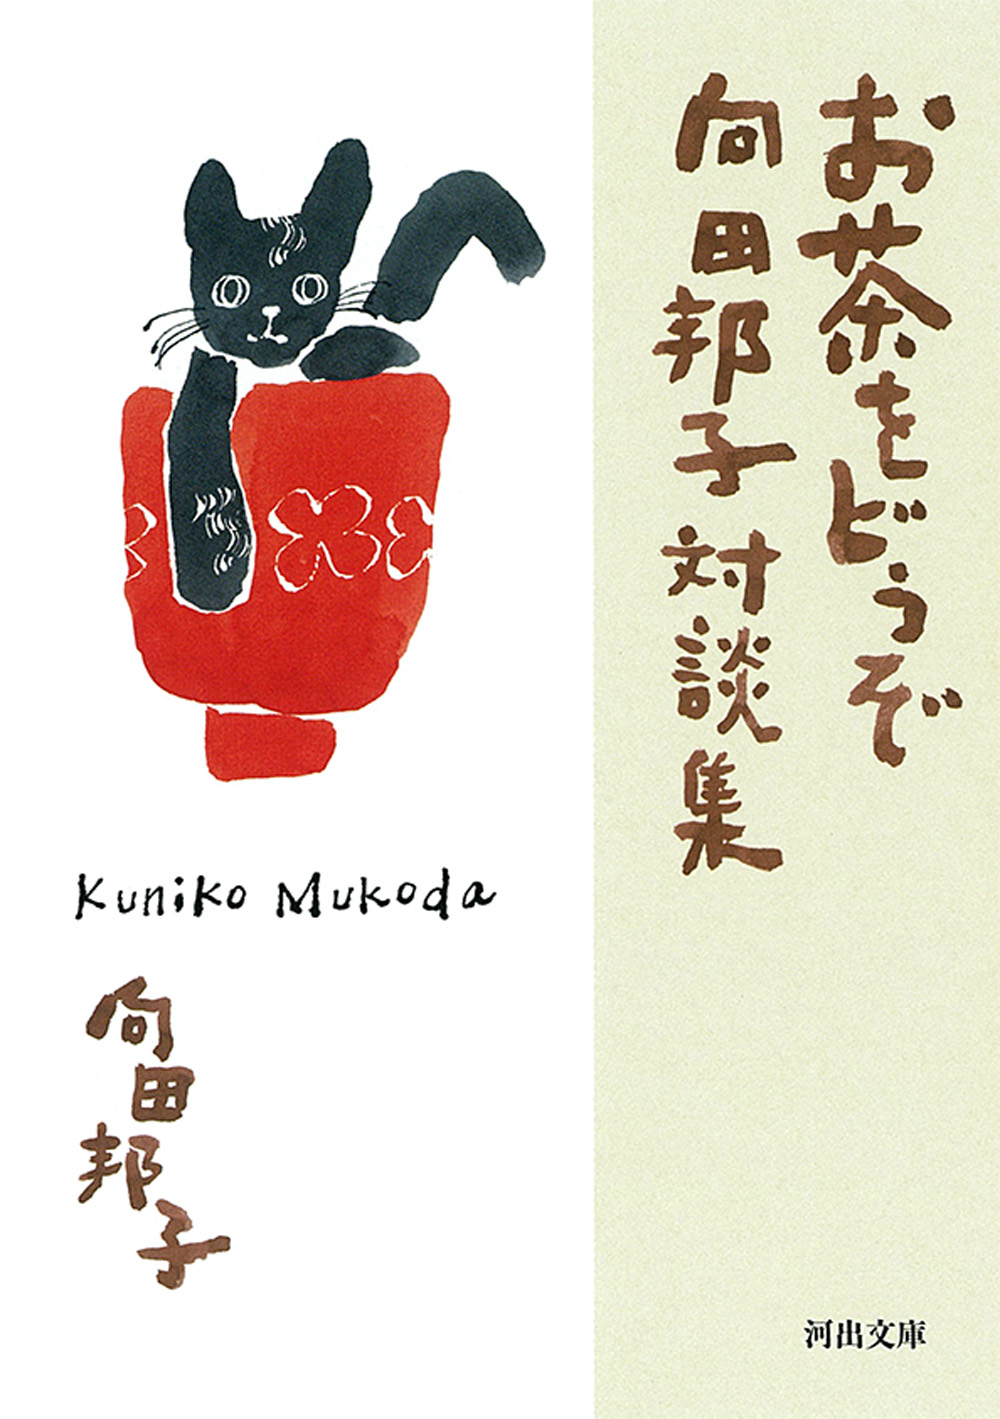 お茶をどうぞ
向田邦子 対談集
Kuniko Mukoda
向田邦子
河出文庫